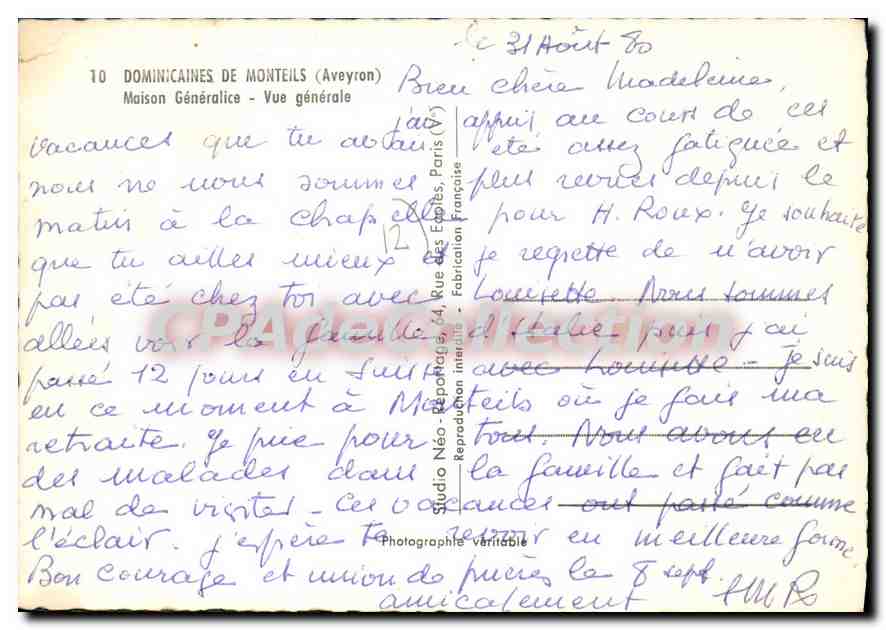 le 31 Août 80
10 DOMINICAINES DE MONTEILS (Aveyron)
Maison Généralice - Vue générale
Bien chère Madeleine,
j'ai appris au cours de ces
vacances que tu avais été assez fatiguée et
nous ne nous sommes plus revues depuis le
matin à la chapelle pour H. Roux. Je souhaite
que tu ailles mieux et je regrette de n'avoir
pas été chez toi avec Louisette. Nous sommes
allées voir la famille d'Italie puis j'ai
passé 12 jours en Suisse avec Louisette - Je suis
en ce moment à Monteils où je fais ma
retraite. Je prie pour tous. Nous avons eu
des malades dans la famille et fait pas
mal de visites - Ces vacances ont passé comme
l'éclair. j'espère te revoir en meilleure forme.
Bon courage et union de prières le 8 sept.
amicalement
12
Studio Néo-Reportage, 64, Rue des Ecoles, Paris (V°)
Reproduction interdite - Fabrication Française
Photographie véritable
CPAdeCollection